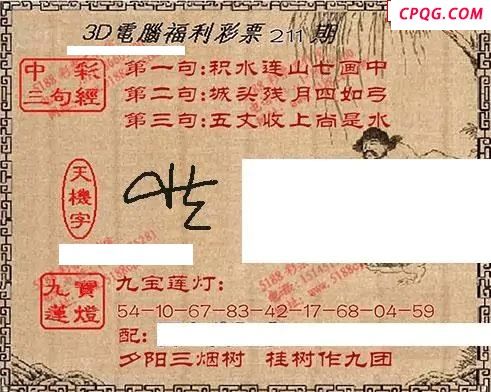 CPQG.COM
3D電腦福利彩票211期
中彩
三句經
第一句:积水连山七画中
第二句:城头残月四如弓
第三句:五丈收上尚是水
天機字
九寶
蓮燈
九宝莲灯:
54-10-67-83-42-17-68-04-59
配:
夕阳三烟树 桂树作九团